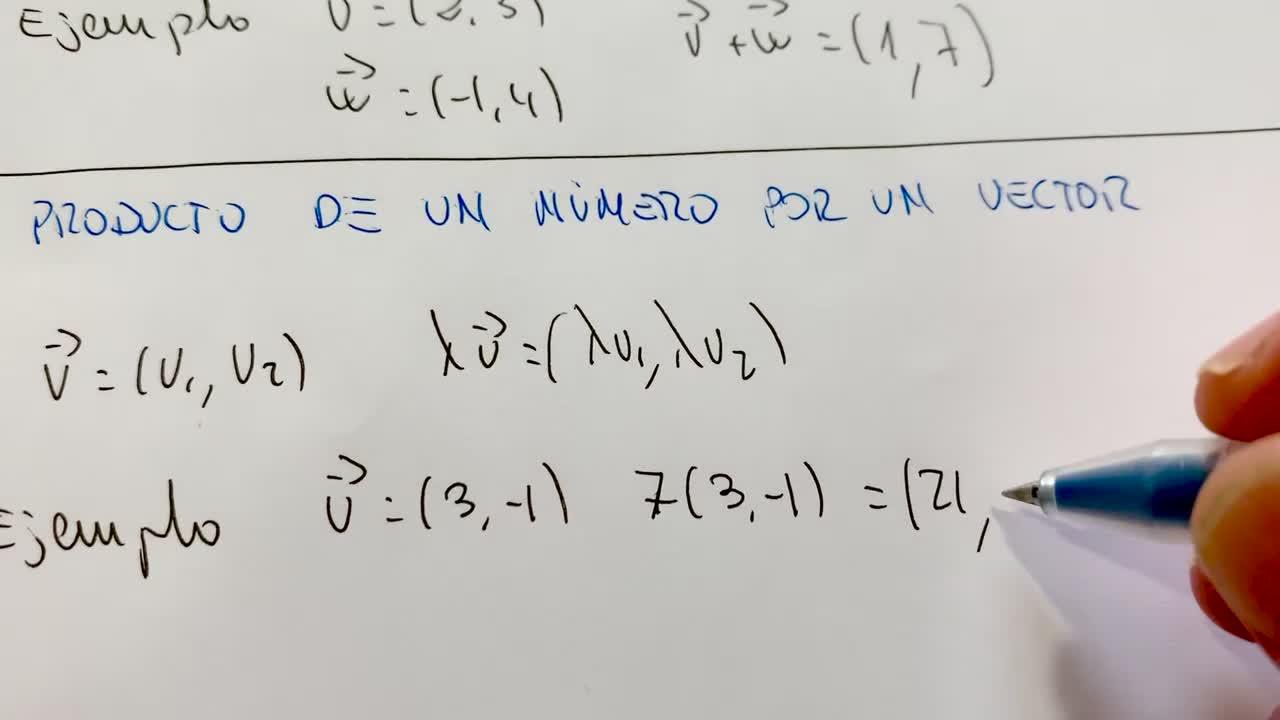 Ejemplo v⃗ = (2, 3) v⃗ + w⃗ = (1, 7)
w⃗ = (-1, 4)
PRODUCTO DE UN NÚMERO POR UN VECTOR
v⃗ = (v₁, v₂) λv⃗ = (λv₁, λv₂)
Ejemplo v⃗ = (3, -1) 7(3, -1) = (21,